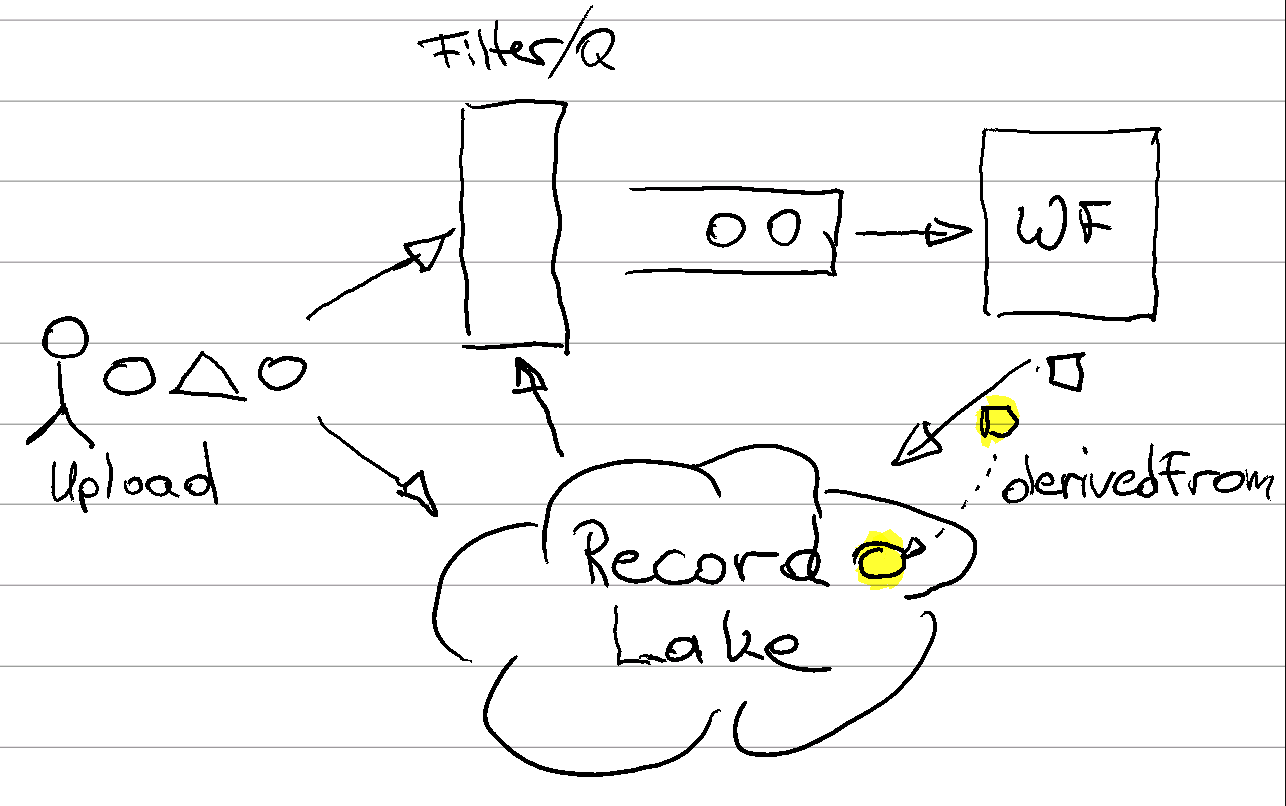 Filter/Q
WF
Upload
derivedFrom
Record
Lake